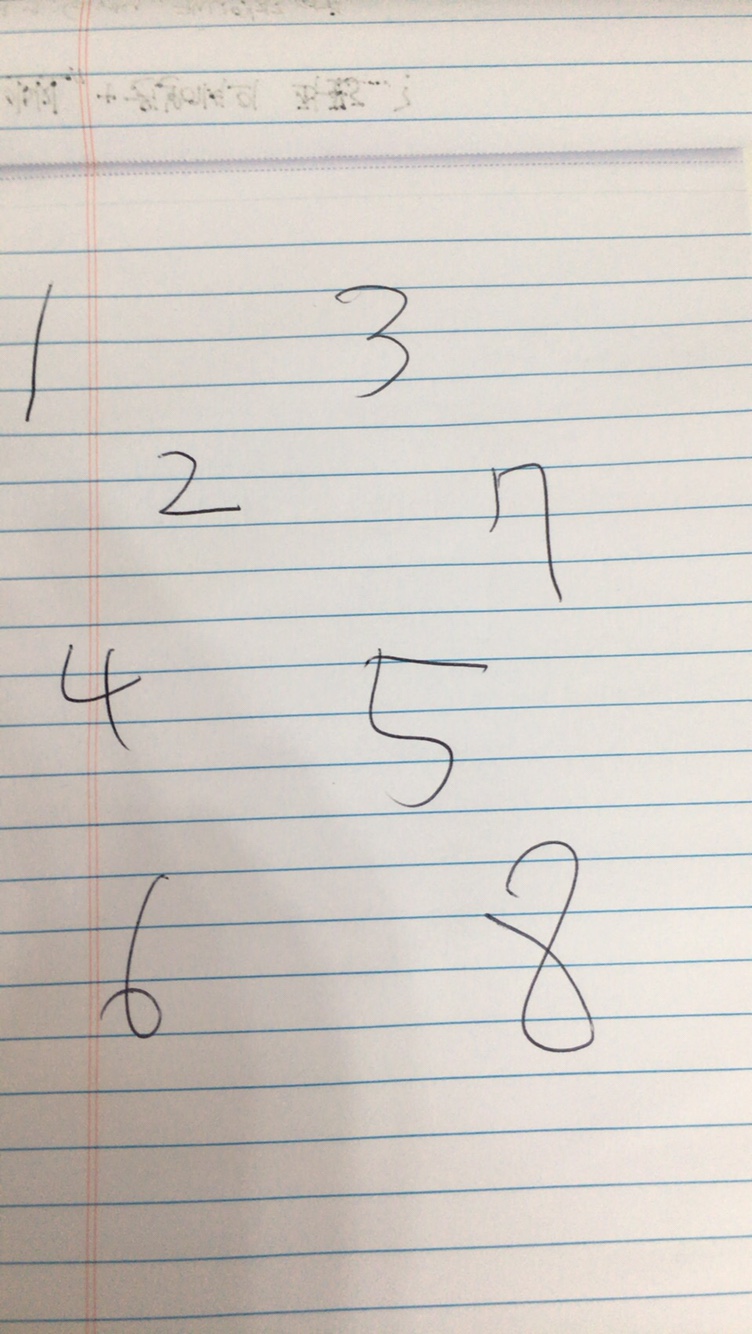 1 3
2 7
4 5
6 8